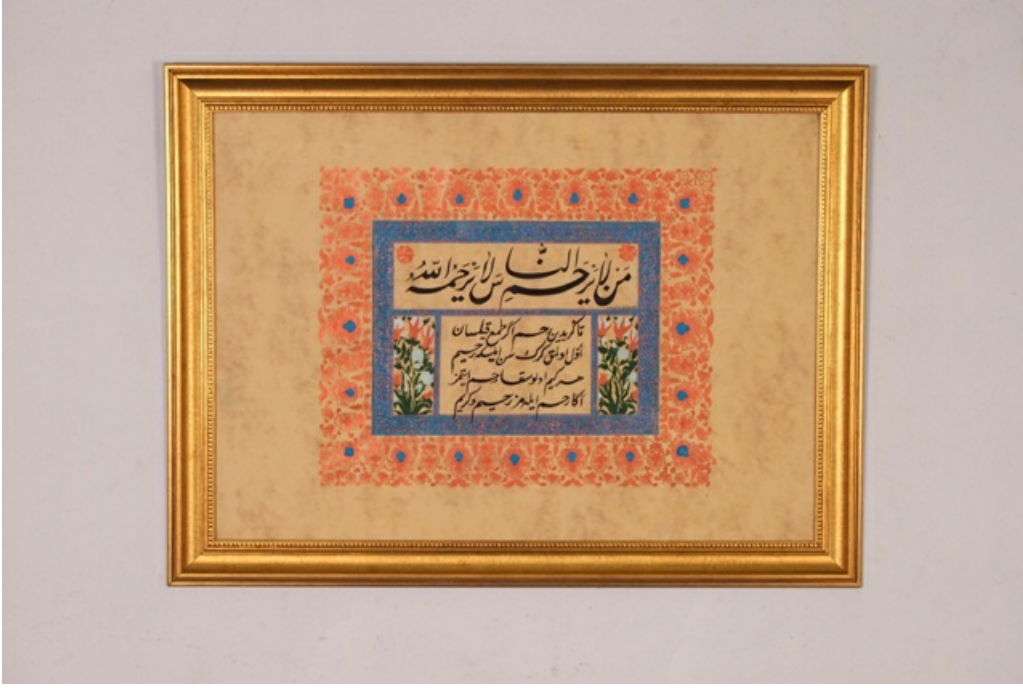 مَنْ لَا يَرْحَمِ النَّاسَ لَا يَرْحَمْهُ اللّٰهُ
تا كريدين رحم اكر طمع قيلسان
اوّل اولمق كرك سن ايليكه رحيم
هر كيم اولوسقا رحم ايتمز
اكا رحم ايله مز رحيم و كريم